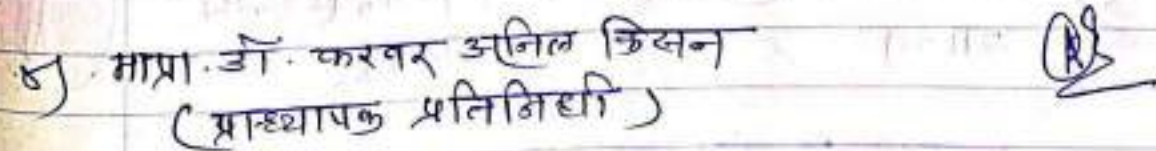 ५) मा.प्रा. डॉ. करवर अनिल किसन
(प्राध्यापक प्रतिनिधी)